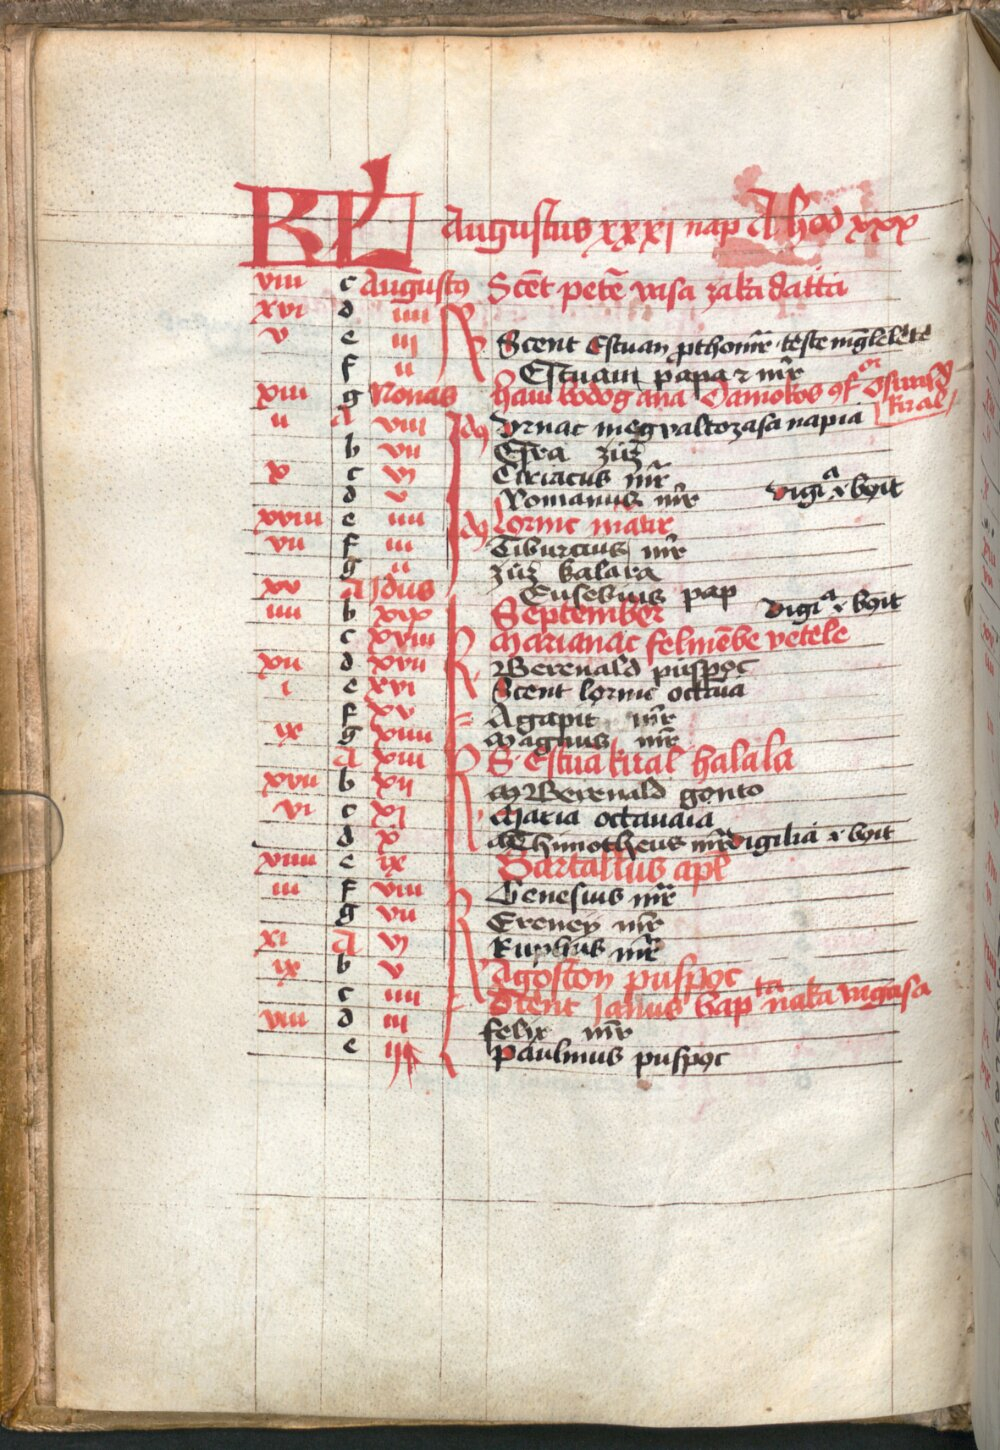 KL Augustus xxxi nap A hod xxx
viii c Augustus Scēt petē vasa zakadatta
xvi d iiii
v e iij Scent Estuan pthomr̄ teste mēglelete
f ii Estuan papa ⁊ mr̄
xiii g Nonas haui bodog ana Damokos ꝯf Osuald kiral
ii A viii Vrnac meg valtozasa napia
b vii Esra zúz
x c vi Ciriacus mr̄
d v Romanus mr̄ vigia ⁊ boit
xviii e iiii lorinc matir
vii f iii Tiburcius mr̄
g ii zúz kalara
xv A Jdus Eusebius pap
iiii b xix September vigia ⁊ boit
c xviii Marianac felmēbe vetele
xii d xvii Berenald puspoc
i e xvi Scent lorinc octaua
f xv Agapit mr̄
ix g xiiii Magnus mr̄
A xiii S Estua kiral halala
xvii b xii Berenald gonto
vi c xi Maria octauaia
d x Thimotheus mr̄ vigilia ⁊ boit
xiiii e ix Bartallus apl
iii f viii Genesius mr̄
g vii Ereney mr̄
xi A vi Ruphus mr̄
ix b v Agoston puspoc
c iiii Scent Janus bapta naka vagasa
viii d iii felix mr̄
e ii Paulinus puspoc